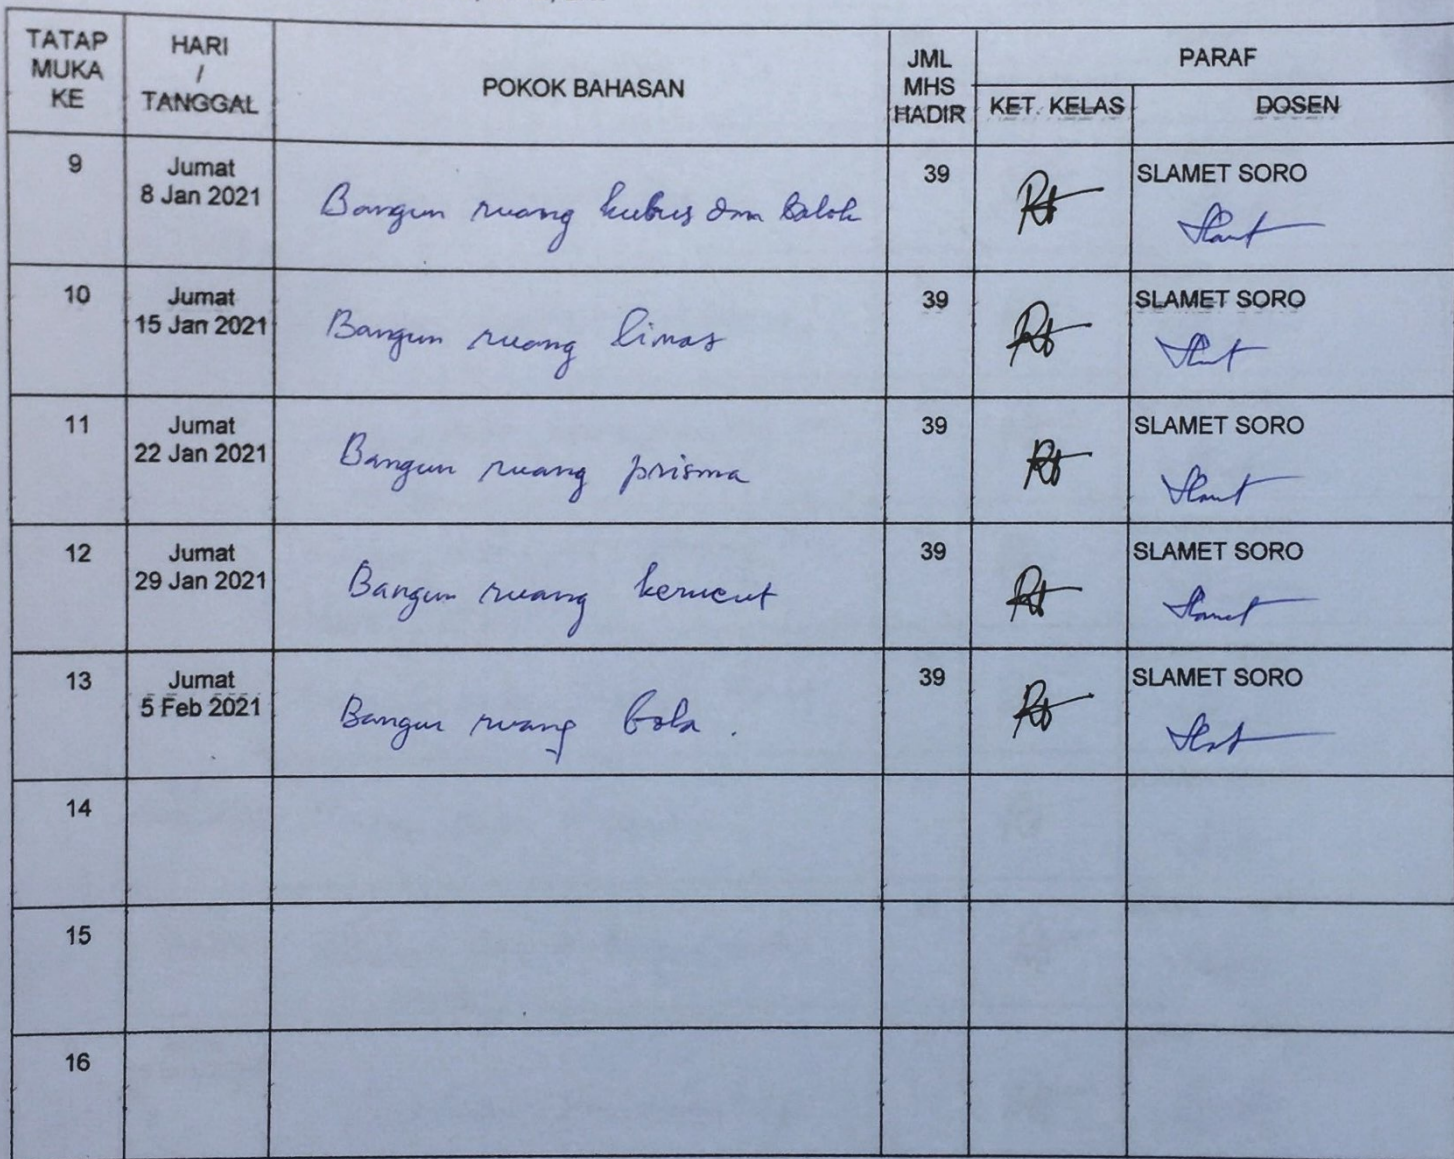 TATAP MUKA KE
HARI / TANGGAL
POKOK BAHASAN
JML MHS HADIR
PARAF
KET. KELAS
DOSEN
9
Jumat
8 Jan 2021
Bangun ruang kubus dan balok
39
SLAMET SORO
10
Jumat
15 Jan 2021
Bangun ruang limas
39
SLAMET SORO
11
Jumat
22 Jan 2021
Bangun ruang prisma
39
SLAMET SORO
12
Jumat
29 Jan 2021
Bangun ruang kerucut
39
SLAMET SORO
13
Jumat
5 Feb 2021
Bangun ruang bola.
39
SLAMET SORO
14
15
16